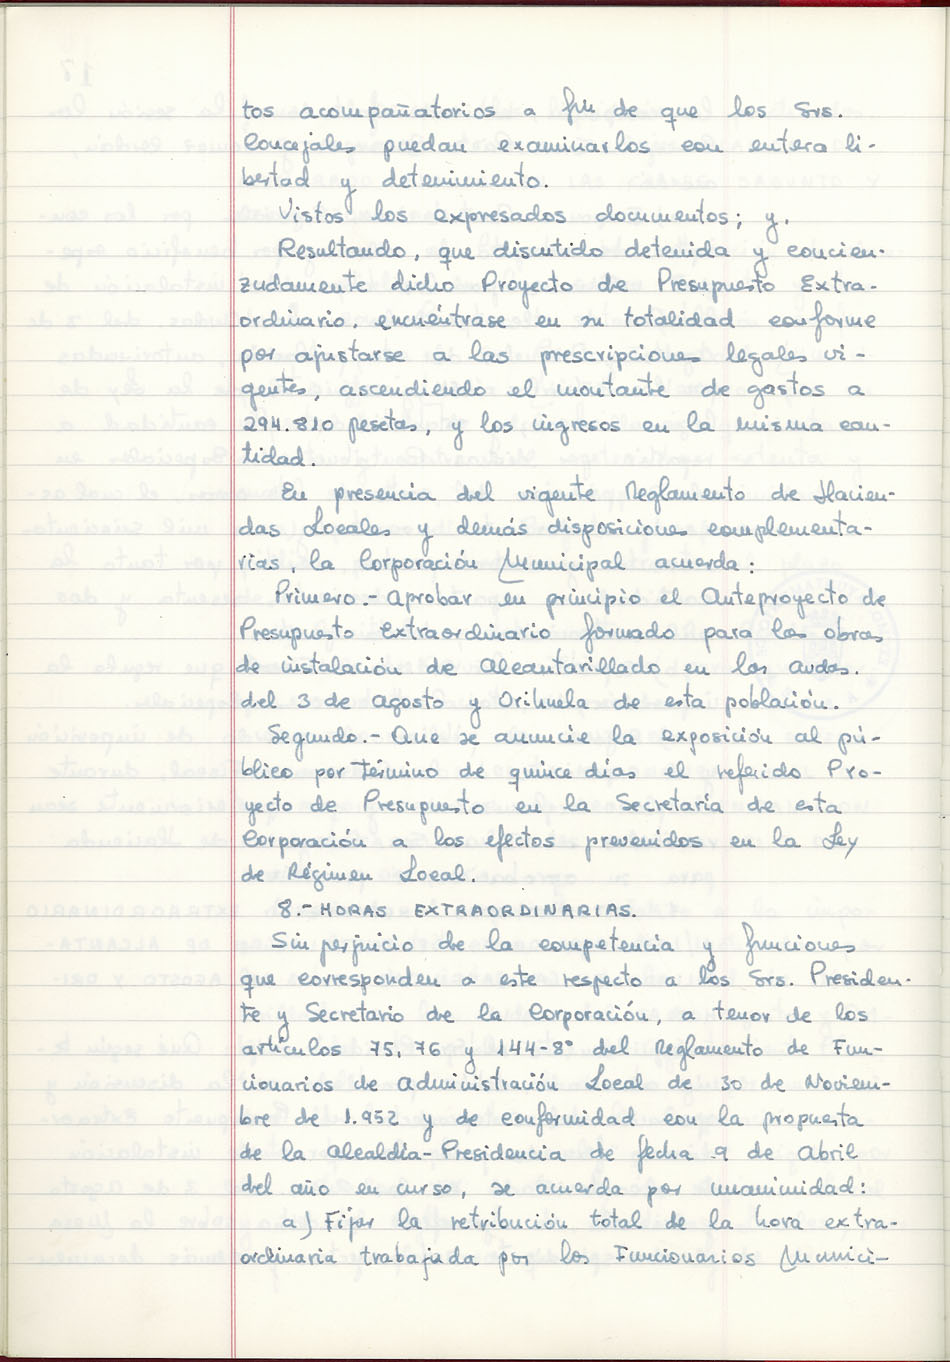 tos acompañatorios a fin de que los Srs.
Concejales puedan examinarlos con entera li-
bertad y detenimiento.
Vistos los expresados documentos; y.
Resultando, que discutido detenida y concien-
zudamente dicho Proyecto de Presupuesto Extra-
ordinario, encuéntrase en su totalidad conforme
por ajustarse a las prescripciones legales vi-
gentes, ascendiendo el montante de gastos a
294.810 pesetas, y los ingresos en la misma can-
tidad.
En presencia del vigente Reglamento de Hacien-
das Locales y demás disposiciones complementa-
rias, la Corporación Municipal acuerda:
Primero.- Aprobar en principio el Anteproyecto de
Presupuesto Extraordinario formado para las obras
de instalación de Alcantarillado en los avdas.
del 3 de Agosto y Orihuela de esta población.
Segundo.- Que se anuncie la exposición al pú-
blico por término de quince días el referido Pro-
yecto de Presupuesto en la Secretaria de esta
Corporación a los efectos prevenidos en la Ley
de Régimen Local.
8.- HORAS EXTRAORDINARIAS.
Sin perjuicio de la competencia y funciones
que corresponden a este respecto a los Srs. Presiden-
te y Secretario de la Corporación, a tenor de los
artículos 75, 76 y 144-8º del Reglamento de Fun-
cionarios de Administración Local de 30 de Noviem-
bre de 1.952 y de conformidad con la propuesta
de la Alcaldía-Presidencia de fecha 9 de Abril
del año en curso, se acuerda por unanimidad:
a) Fijar la retribución total de la hora extra-
ordinaria trabajada por los Funcionarios Munici-